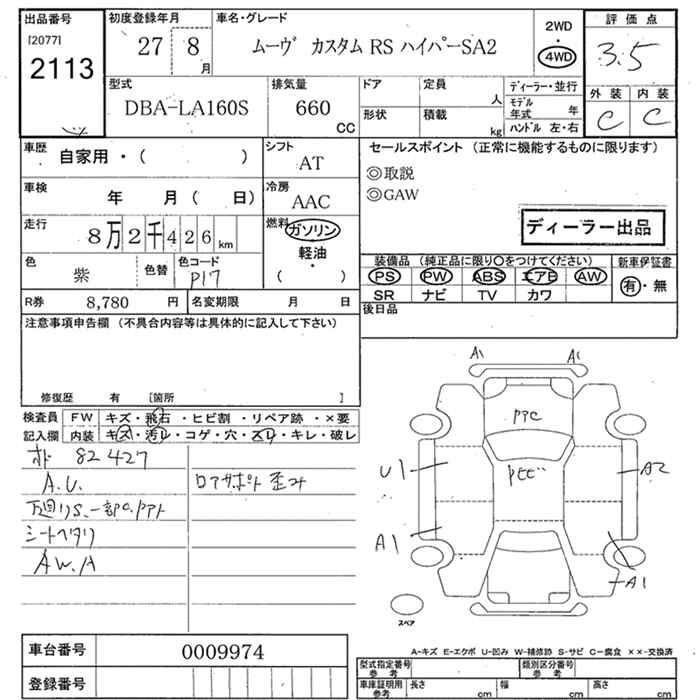 出品番号 初度登録年月 車名・グレード 評価点
[2077] 2113 27 8月 ムーヴ カスタム RS ハイパーSA2 2WD・4WD 3.5
外装 内装
C C
型式 排気量 ドア 定員 ディーラー・並行
DBA-LA160S 660 CC 人 モデル年式 年
形状 積載 kg ハンドル 左・右
車歴 シフト セールスポイント (正常に機能するものに限ります)
自家用・( ) AT ◎取説
車検 冷房 ◎GAW
年 月 ( 日) AAC
走行 燃料 ディーラー出品
8万2千426km ガソリン
軽油
・
( )
色 色替 色コード 装備品 (純正品に限り○をつけてください) 新車保証書
紫 P17 PS PW ABS エアB AW 有・無
SR ナビ TV カワ
R券 8,780円 名変期限 月 日 後日品
注意事項申告欄 (不具合内容等は具体的に記入して下さい)
修復歴 有 [箇所 ]
検査員 FW キズ・飛石・ヒビ割・リペア跡・×要
記入欄 内装 キズ・汚レ・コゲ・穴・スレ・キレ・破レ
82427
A.U. ロアサポート 歪み
シートヘタリ
AW.A
A1 A1
PTC
U1 A2
A1 A1
スペア
A-キズ E-エクボ U-凹み W-補修跡 S-サビ C-腐食 ××-交換済
車台番号 0009974
登録番号
型式指定番号 参考 類別区分番号 参考
車庫証明用 参考 長さ cm 幅 cm 高さ cm